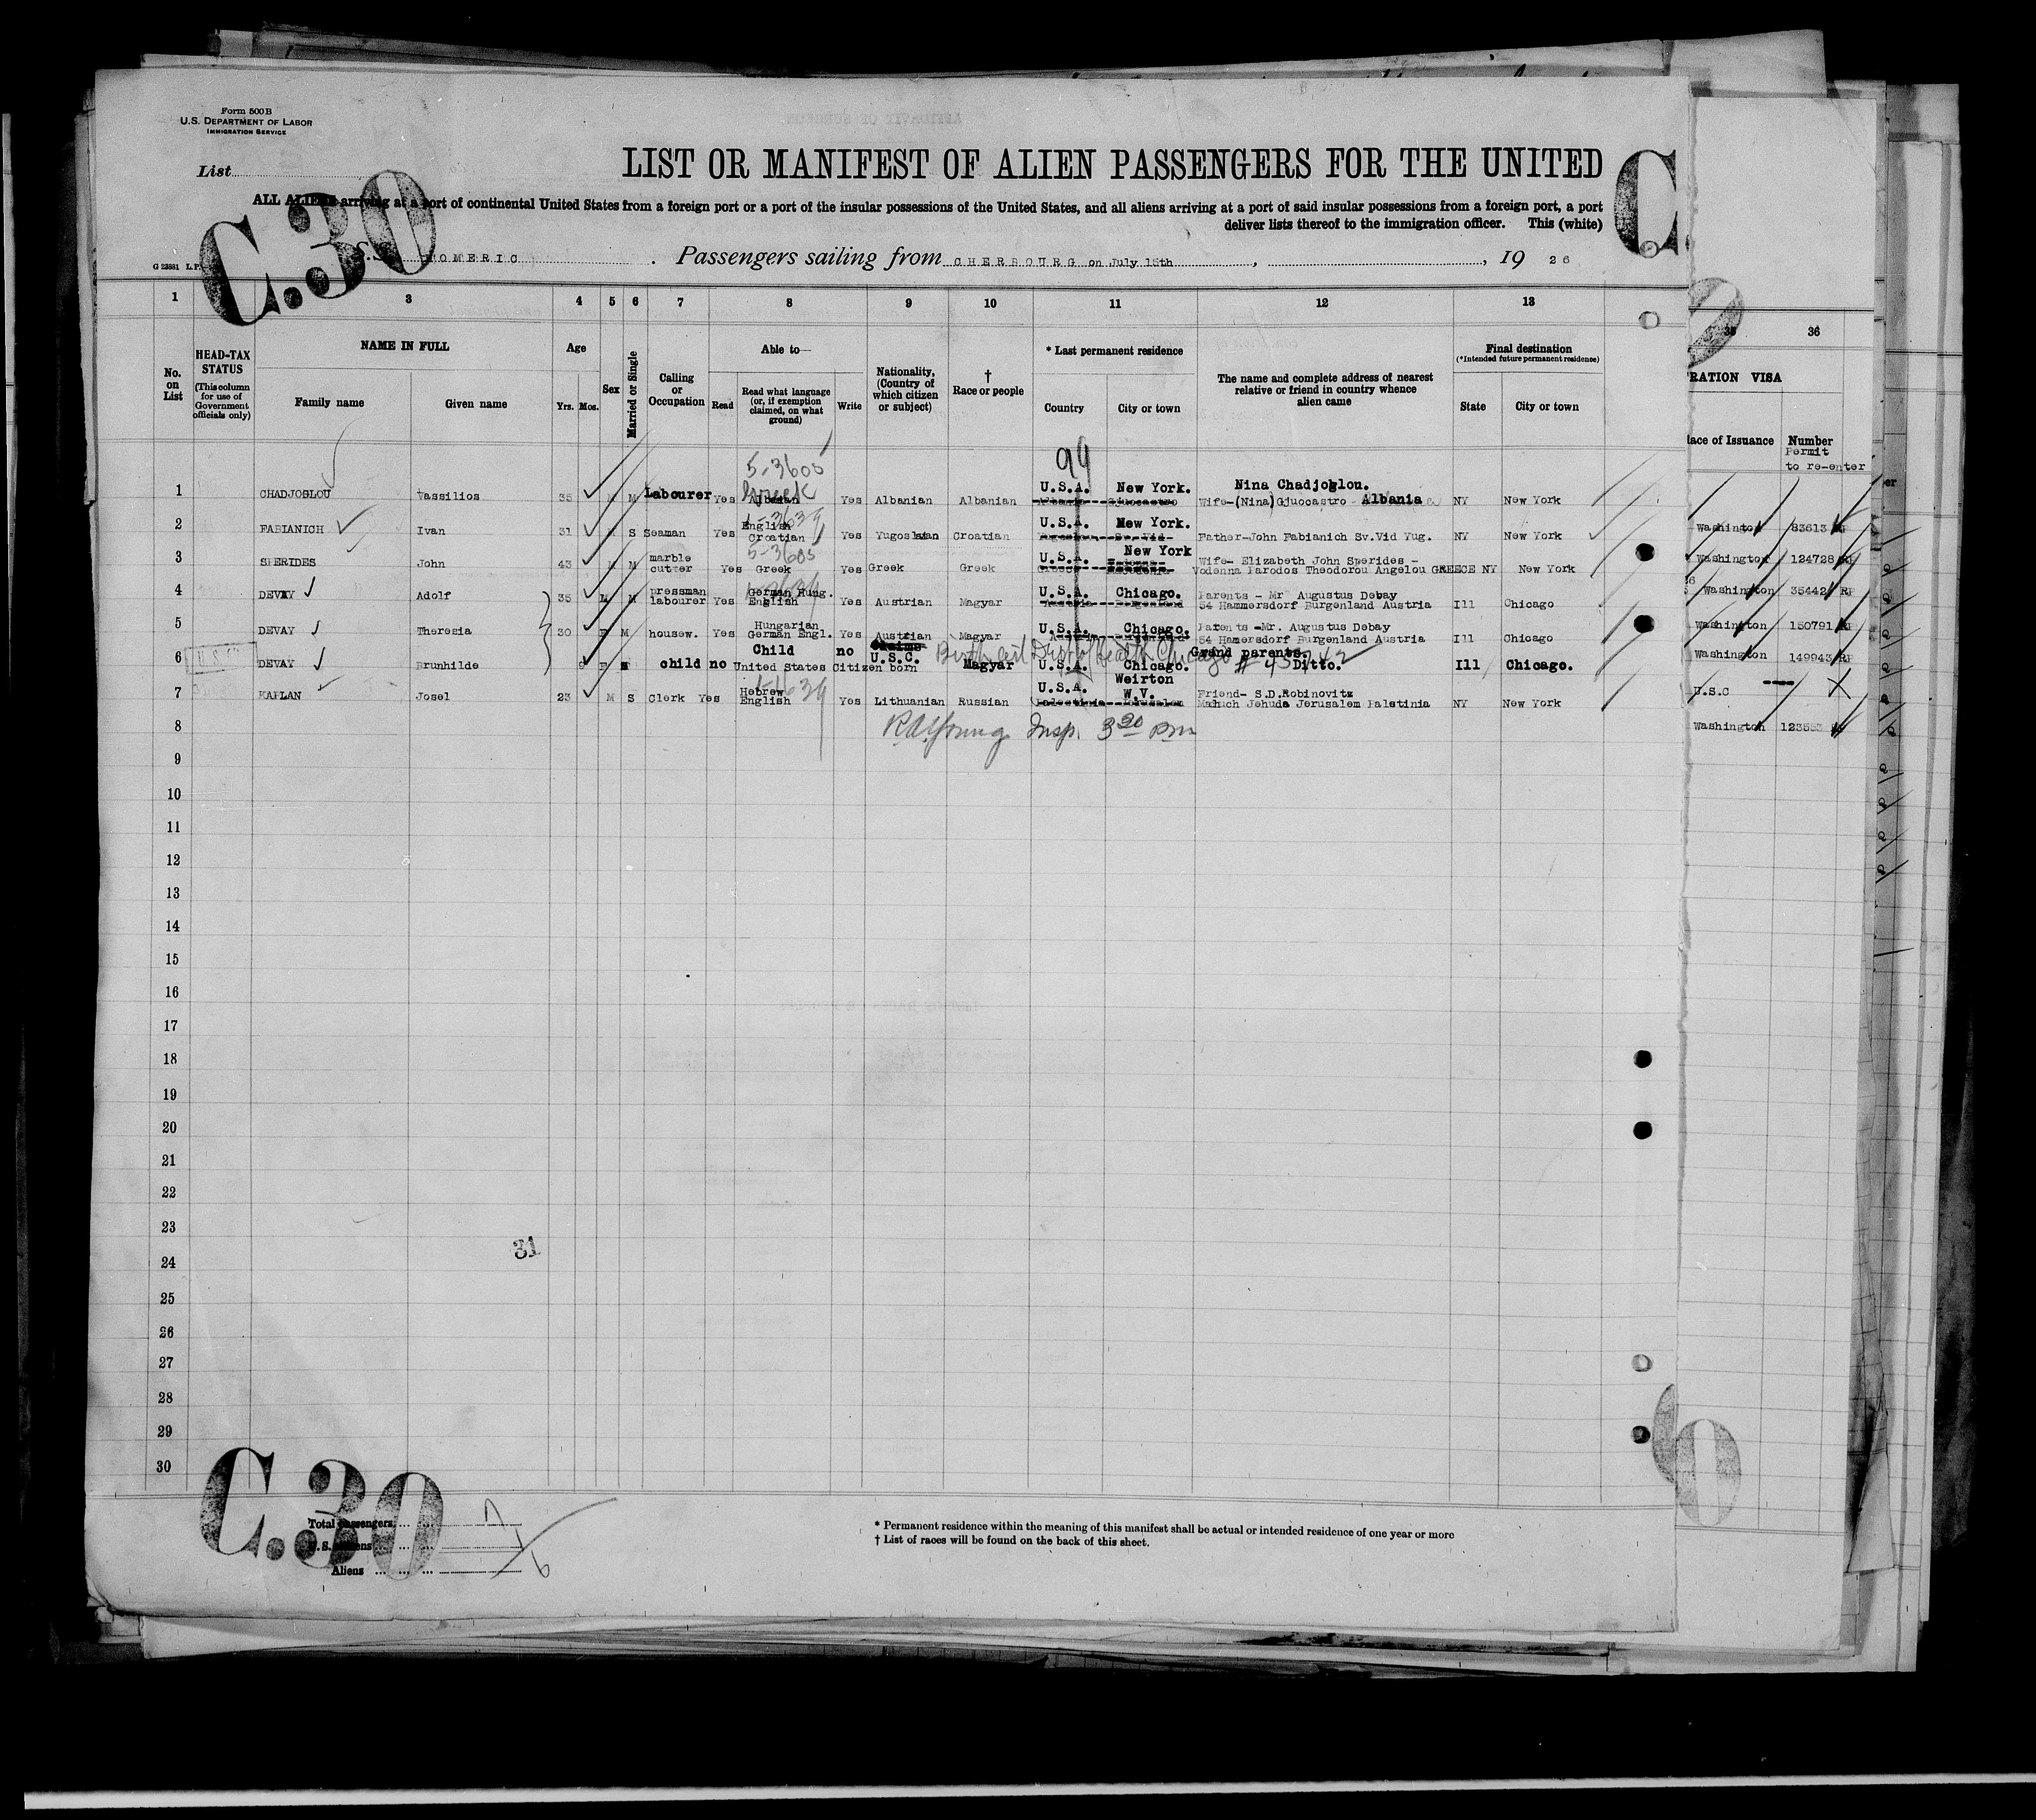 Form 500B
U.S. DEPARTMENT OF LABOR
IMMIGRATION SERVICE
List
LIST OR MANIFEST OF ALIEN PASSENGERS FOR THE UNITED
C.30
C
ALL ALIENS arriving at a port of continental United States from a foreign port or a port of the insular possessions of the United States, and all aliens arriving at a port of said insular possessions from a foreign port, a port
deliver lists thereof to the immigration officer. This (white)
S.S. HOMERIC Passengers sailing from CHERBOURG on July 15th, 1926
1 3 4 5 6 7 8 9 10 11 12 13 36
No. on List
HEAD-TAX STATUS (This column for use of Government officials only)
NAME IN FULL
Family name Given name
Age Yrs. Mos.
Sex
Married or Single
Calling or Occupation
Able to—
Read Read what language (or, if exemption claimed, on what ground) Write
Nationality, (Country of which citizen or subject)
† Race or people
* Last permanent residence
Country City or town
The name and complete address of nearest relative or friend in country whence alien came
Final destination (*Intended future permanent residence)
State City or town
RATION VISA
lace of Issuance Number
Permit to re-enter
5-3605 99
Greek U.S.A. New York. Nina Chadjoglou.
1 CHADJOGLOU Vassilios 35 M M Labourer Yes Albanian Yes Albanian Albanian Wife-(Nina) Gjuocastro Albania NY New York
English U.S.A. New York.
2 FABIANICH Ivan 31 M S Seaman Yes Croatian Yes Yugoslavian Croatian Father-John Fabianich Sv.Vid Yug. NY New York Washington 83613 RP
5-3605 U.S.A. New York Wife- Elizabeth John Sperides -
3 SPERIDES John 43 M M marble cutter Yes Greek Yes Greek Greek Vodenna Parodos Theodorou Angelou GREECE NY New York Washington 124728 RP
German Hung. U.S.A. Chicago. Parents - Mr Augustus Debay
4 DEVAY Adolf 35 M M pressman labourer Yes English Yes Austrian Magyar 54 Hammersdorf Burgenland Austria Ill Chicago Washington 35442 RP
Hungarian U.S.A. Chicago. Parents -Mr. Augustus Debay
5 DEVAY Theresia 30 F M housew. Yes German Engl. Yes Austrian Magyar 54 Hamersdorf Burgenland Austria Ill Chicago Washington 150791 RP
Child no Claims U.S.C. Birth cert Dept of Health Chicago Grand parents.
6 DEVAY Brunhilde F child no United States Citizen born Magyar U.S.A. Chicago. Ditto. Ill Chicago. Washington 149943 RP
Hebrew U.S.A. Weirton W.V. Friend- S.D.Robinovitz
7 KAPLAN Josel 23 M S Clerk Yes English Yes Lithuanian Russian Mahuch Jehuda Jerusalem Palstinia NY New York U.S.C
8 Insp. 3 20 pm Washington
9
10
11
12
13
14
15
16
17
18
19
20
21
22
23
31
24
25
26
27
28
29
30
C.30
Total passengers 7
U.S. citizens 1
Aliens 6
* Permanent residence within the meaning of this manifest shall be actual or intended residence of one year or more
† List of races will be found on the back of this sheet.